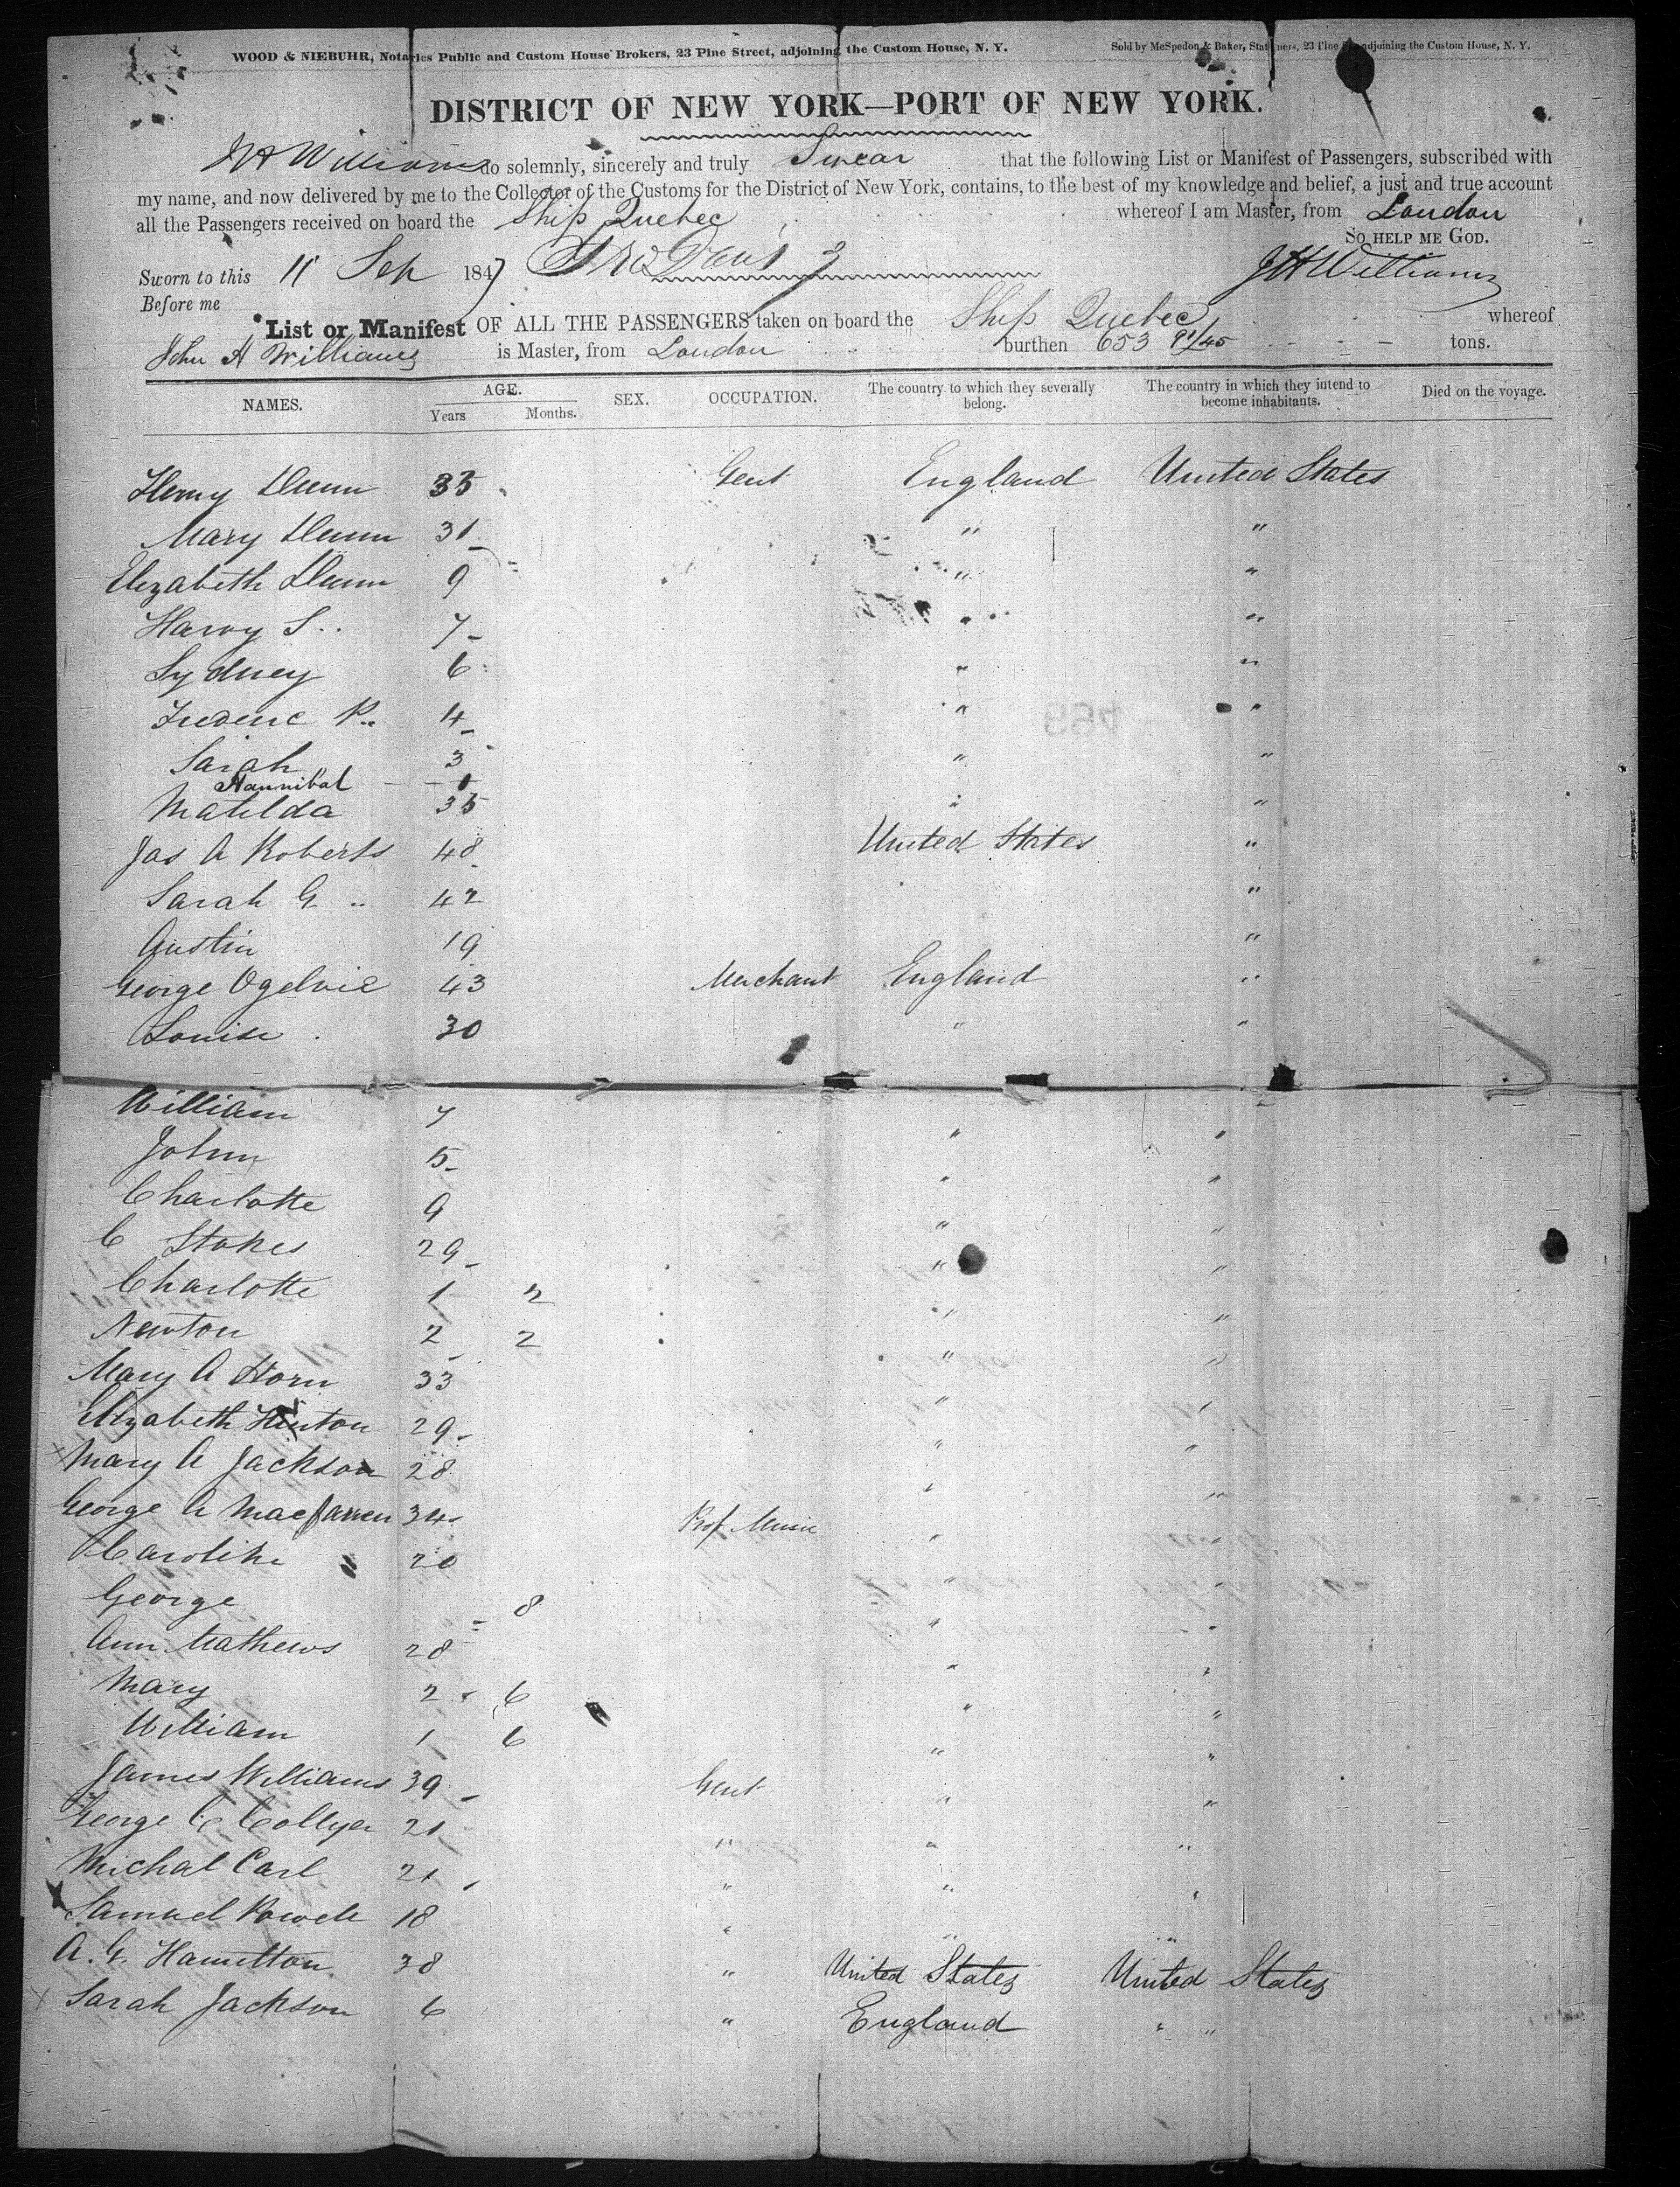 WOOD & NIEBUHR, Notaries Public and Custom House Brokers, 23 Pine Street, adjoining the Custom House, N. Y. Sold by McSpedon & Baker, Stationers, 23 Pine St. adjoining the Custom House, N. Y.
DISTRICT OF NEW YORK—PORT OF NEW YORK.
J H Williams do solemnly, sincerely and truly Swear that the following List or Manifest of Passengers, subscribed with
my name, and now delivered by me to the Collector of the Customs for the District of New York, contains, to the best of my knowledge and belief, a just and true account
all the Passengers received on board the Ship Quebec whereof I am Master, from London
SO HELP ME GOD.
Sworn to this 11 Sep 1847 J H Williams
Before me
List or Manifest OF ALL THE PASSENGERS taken on board the Ship Quebec whereof
John H Williams is Master, from London burthen 653 91/45 tons.
NAMES. AGE. SEX. OCCUPATION. The country to which they severally belong. The country in which they intend to become inhabitants. Died on the voyage.
Years Months.
Henry Dunn 35 Gent England United States
Mary Dunn 31 " "
Elizabeth Dunn 9 " "
Harvy S. " 7 " "
Sydney 6 " "
Frederic P. " 4 " "
Sarah 3 " "
Hannibal — 1
Matilda 35 " "
Jas A Roberts 48 United States "
Sarah G " 42 "
Austin 19 "
George Ogelvie 43 Merchant England "
Louise 30 " "
William 7 " "
John 5 " "
Charlotte 9 " "
C Stokes 29 " "
Charlotte 1 2 " "
Newton 2 2 " "
Mary A Horn 33 " "
Elizabeth Hinton 29 " "
x Mary A Jackson 28 " "
George A Macfarren 34 Prof Music " "
Caroline 20 " "
George 8 " "
Ann Mathews 28 " "
Mary 2 6 " "
William 1 6 " "
James Williams 39 Gent " "
George C Collyer 21 " " "
Michal Carl 21 " " "
Samuel Powell 18 " " "
A. G. Hamilton 38 " United States United States
x Sarah Jackson 6 " England " "